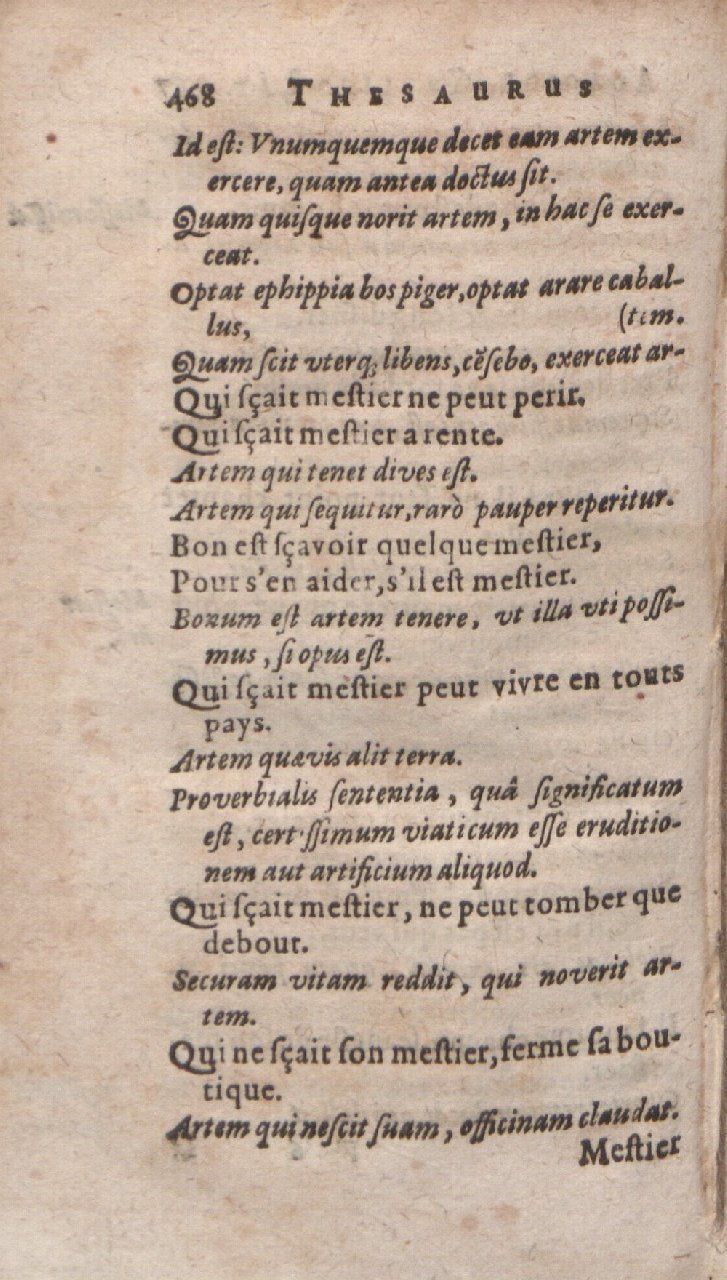 468 THESAURUS
Id eſt: Vnumquemque decet eam artem ex-
ercere, quam antea doctus ſit.
Quam quiſque norit artem, in hac ſe exer-
ceat.
Optat ephippia bos piger, optat arare cabal-
lus, (tem.
Quam ſcit vterq; libens, cẽſebo, exerceat ar-
Qui ſçait meſtier ne peut perir.
Qui ſçait meſtier a rente.
Artem qui tenet dives eſt.
Artem qui ſequitur, rarò pauper reperitur.
Bon eſt sçavoir quelque meſtier,
Pour s'en aider, s'il eſt meſtier.
Bonum eſt artem tenere, vt illa vti poſſi-
mus, ſi opus eſt.
Qui ſçait meſtier peut vivre en touts
pays.
Artem quævis alit terra.
Proverbialis ſententia, quâ ſignificatum
eſt, certiſſimum viaticum eſſe eruditio-
nem aut artificium aliquod.
Qui ſçait meſtier, ne peut tomber que
debout.
Securam vitam reddit, qui noverit ar-
tem.
Qui ne ſçait ſon meſtier, ferme ſa bou-
tique.
Artem qui neſcit ſuam, officinam claudat.
Meſtier